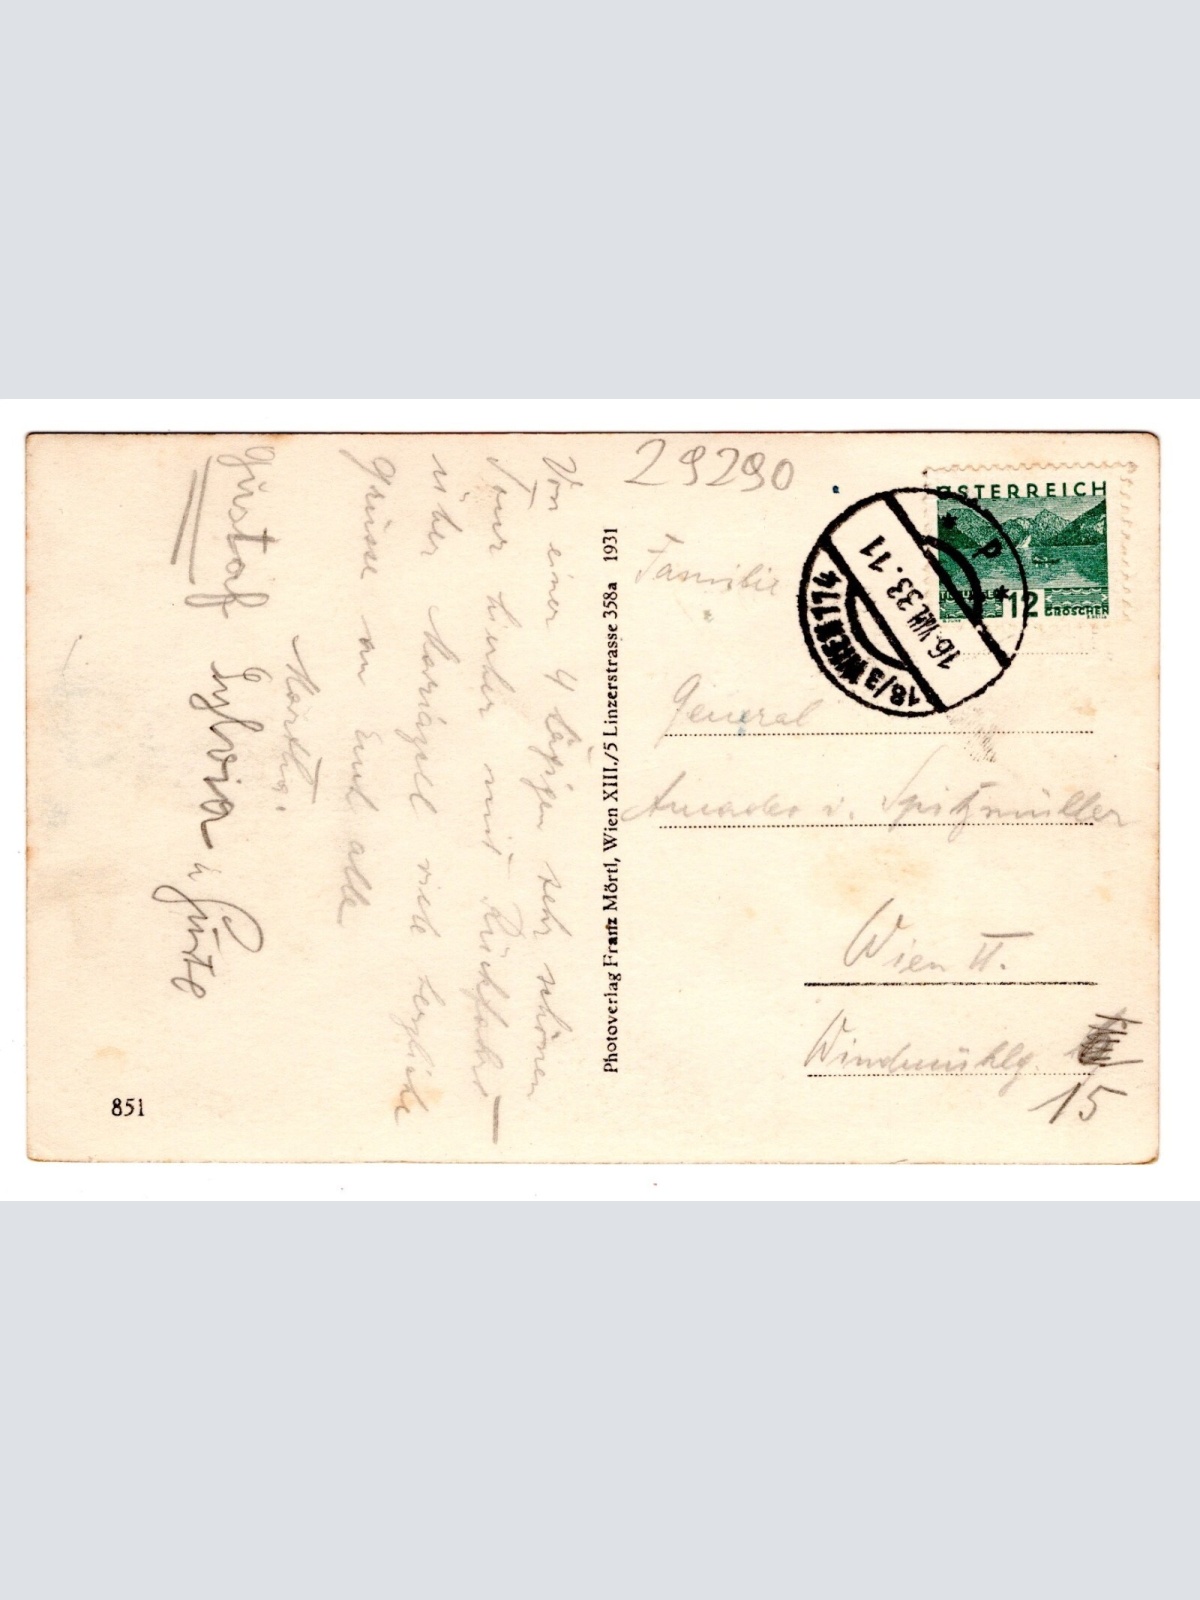 29290
ÖSTERREICH
12 GROSCHEN
18/3 WIEN 114
16.VIII.33.11
* P *
Familie
General
Amadeo v. Spitzmüller
Wien VI.
Windmühlg.
15
Photoverlag Franz Mörtl, Wien XIII./5 Linzerstrasse 358a 1931
Von einer 4 tägigen sehr schönen
Tour hinter mit Rückfahrt
über Mariazell viele herzliche
Grüsse an Euch alle
Gustaf Sylvia u
851